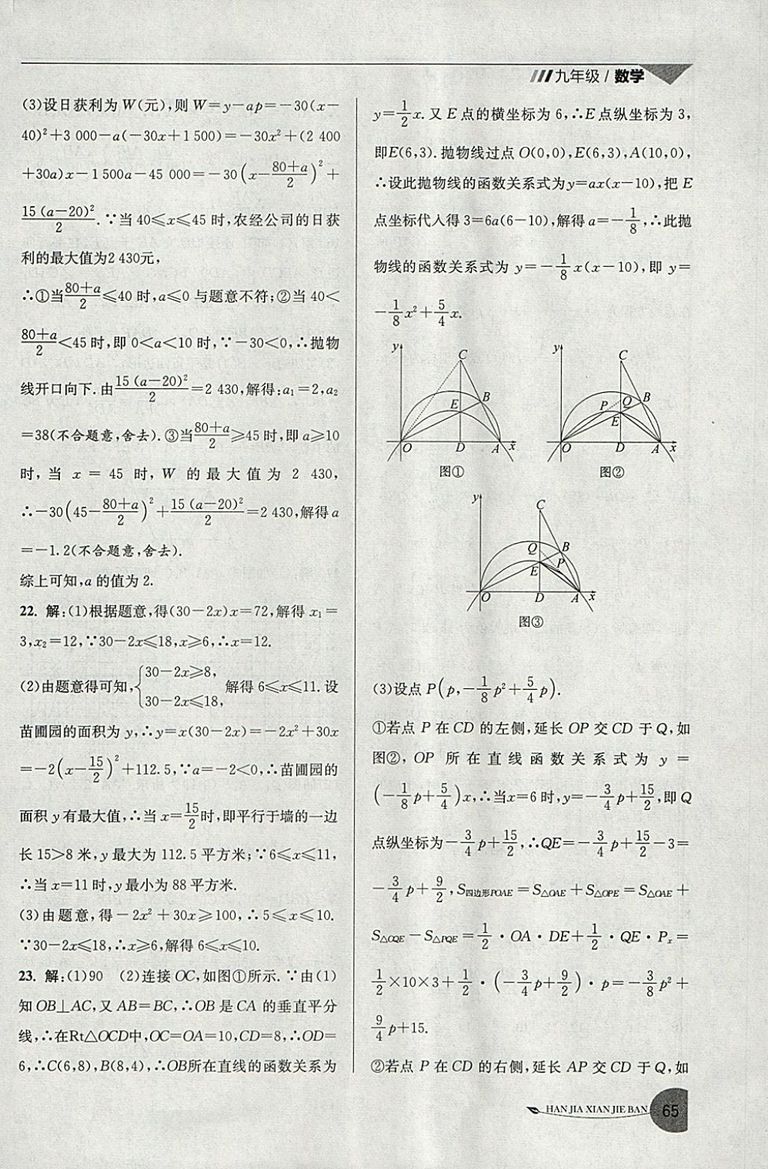 九年级/数学
(3)设日获利为W(元),则W=y-ap=-30(x-
40)²+3 000-a(-30x+1 500)=-30x²+(2 400
+30a)x-1 500a-45 000=-30(x-\frac{80+a}{2})²+
\frac{15(a-20)²}{2}.∵当40≤x≤45时,农经公司的日获
利的最大值为2 430元,
∴①当\frac{80+a}{2}≤40时,a≤0与题意不符;②当40<
\frac{80+a}{2}<45时,即0<a<10时,∵-30<0,∴抛物
线开口向下.由\frac{15(a-20)²}{2}=2 430,解得:a₁=2,a₂
=38(不合题意,舍去).③当\frac{80+a}{2}≥45时,即a≥10
时,当x=45时,W的最大值为2 430,
∴-30(45-\frac{80+a}{2})²+\frac{15(a-20)²}{2}=2 430,解得a
=-1.2(不合题意,舍去).
综上可知,a的值为2.
22. 解:(1)根据题意,得(30-2x)x=72,解得x₁=
3,x₂=12,∵30-2x≤18,x≥6,∴x=12.
(2)由题意得可知,{30-2x≥8, 30-2x≤18, 解得6≤x≤11.设
苗圃园的面积为y,∴y=x(30-2x)=-2x²+30x
=-2(x-\frac{15}{2})²+112.5,∵a=-2<0,∴苗圃园的
面积y有最大值,∴当x=\frac{15}{2}时,即平行于墙的一边
长15>8米,y最大为112.5平方米;∵6≤x≤11,
∴当x=11时,y最小为88平方米.
(3)由题意,得-2x²+30x≥100,∴5≤x≤10.
∵30-2x≤18,∴x≥6,解得6≤x≤10.
23. 解:(1)90 (2)连接OC,如图①所示.∵由(1)
知OB⊥AC,又AB=BC,∴OB是CA的垂直平分
线,∴在Rt△OCD中,OC=OA=10,CD=8,∴OD=
6,∴C(6,8),B(8,4),∴OB所在直线的函数关系为
y=\frac{1}{2}x.又E点的横坐标为6,∴E点纵坐标为3,
即E(6,3).抛物线过点O(0,0),E(6,3),A(10,0),
∴设此抛物线的函数关系式为y=ax(x-10),把E
点坐标代人得3=6a(6-10),解得a=-\frac{1}{8},∴此抛
物线的函数关系式为y=-\frac{1}{8}x(x-10),即y=
-\frac{1}{8}x²+\frac{5}{4}x.
y C E B O D A x
图①
y C P Q B E O D A x
图②
y C Q B E P O D A x
图③
(3)设点P(p,-\frac{1}{8}p²+\frac{5}{4}p).
①若点P在CD的左侧,延长OP交CD于Q,如
图②,OP所在直线函数关系式为y=
(-\frac{1}{8}p+\frac{5}{4})x,∴当x=6时,y=-\frac{3}{4}p+\frac{15}{2},即Q
点纵坐标为-\frac{3}{4}p+\frac{15}{2},∴QE=-\frac{3}{4}p+\frac{15}{2}-3=
-\frac{3}{4}p+\frac{9}{2},S四边形POAE=S△OAE+S△OPE=S△OAE+
S△OQE-S△PQE=\frac{1}{2}·OA·DE+\frac{1}{2}·QE·Pₓ=
\frac{1}{2}×10×3+\frac{1}{2}·(-\frac{3}{4}p+\frac{9}{2})·p=-\frac{3}{8}p²+
\frac{9}{4}p+15.
②若点P在CD的右侧,延长AP交CD于Q,如
HAN JIA XIAN JIE BAN 65